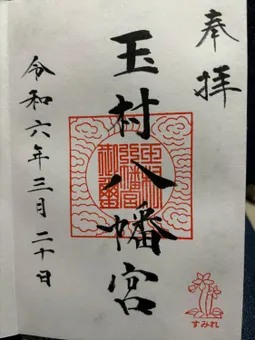 奉拝
玉村八幡宮
令和六年三月二十日
すみれ